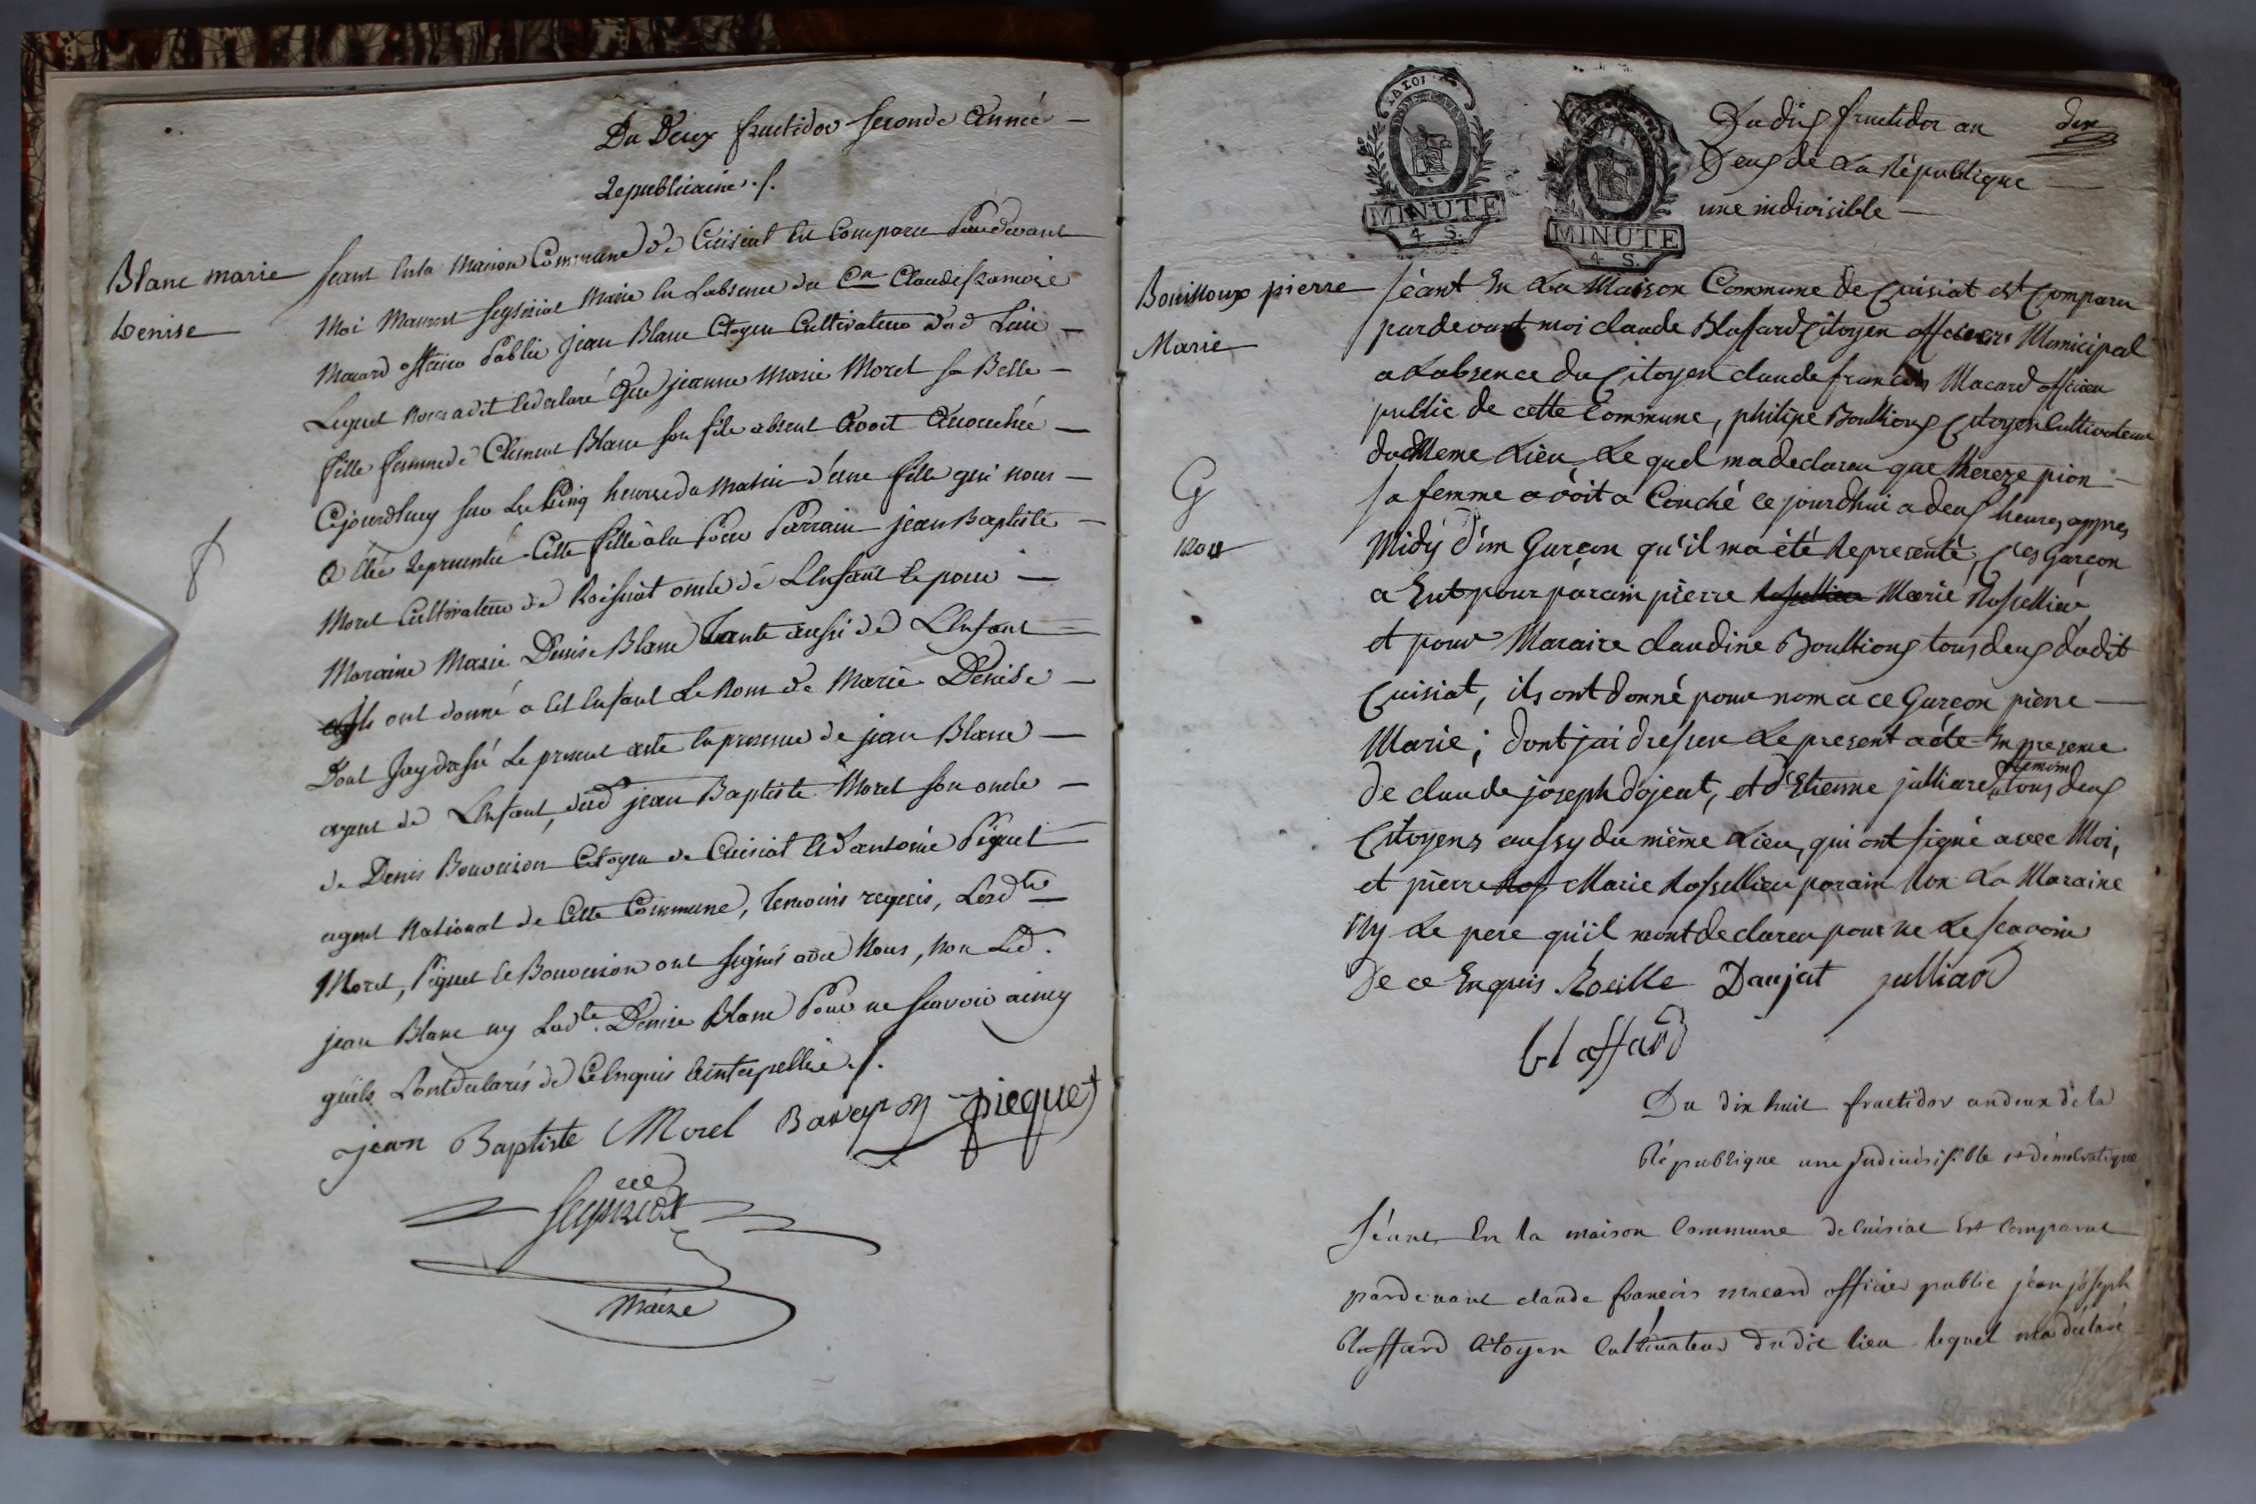 Du Deux fructidor seconde Année
Republicaine ./.
Blanc marie
Denise
seant En la Maison Commune de Cuisiat Est Comparu Pardevant
Moi Maurice Maire En Labsence du Cn Claude francois
Macard officier Public jean Blanc Citoyen Cultivateur dud Lieu
Lequel nous a dit Et declaré Que jeanne Marie Morel sa Belle
fille femme de Clement Blanc son fils absent Avoit Accouchée
Cejourdhuy sur Les Cinq heures du Matin d'une fille qui nous
A Etée Representée Cette fille a Eu Pour Parrain jean Baptiste
Morel Cultivateur de Roissiat oncle de L'Enfant Et pour
Maraine Marie Denise Blanc Tante aussi de L'Enfant
Ils ont donné a Cet Enfant Le Nom de Marie Denise
Dont Jay dressé Le present acte En presence de jean Blanc
ayeul de L'Enfant, dud jean Baptiste Morel son oncle
de Denis Bouveiron Citoyen de Cuisiat Et d'antoine Piquet
agent National de Cette Commune, Temoins requis, Lesd
Morel, Piquet Et Bouveiron ont signés avec Nous, non Led.
jean Blanc ny Lade. Denise Blanc Pour ne scavoir ainsy
quils Lont declarés de Ce Enquis Et interpellée ./.
jean Baptiste Morel Baveyron pieque
Maire
MINUTE
4 S.
MINUTE
4 S.
Du dix fructidor an
Deux de La République
une indivisible
dix
Bouilloux pierre
Marie
G
séant En La Maison Commune de Cuisiat est Comparu
pardevant moi claude Blaffard Citoyen officiers Municipal
a Labsence du Citoyen claude francois Macard officier
public de cette Commune, philipe Boullioux Citoyen Cultivateur
du Meme Lieu, Le quel ma declarer que thereze pion
sa femme avoit a Couché ce jourdhui a deux heures appres
Midy d'un Garçon qu'il ma été Representé, Ces Garçon
a Eut pour parain pierre Marie Rossellier
et pour Maraire claudine Boullioux tous deux dudit
Cuisiat, ils ont donné pour nom a ce Garçon pierre
Marie ; dont jai dresser Le present acte En presence
de claude joseph dojeat, et d'Etienne julliard temoins tous deux
Citoyens aussy du même Lieu, qui ont signé avec Moi,
et pierre Marie Rossellier parain Non La Maraine
Ny Le pere qu'il mont declarer pour ne Le scavoir
de ce Enquis Daujat julliard
blaffard
Du dix huit fructidor an deux de la
République une indivisible et démocratique
séant En la maison Commune de Cuisiat Est Comparut
pardevant claude françois macard officier public jean joseph
blaffard Citoyen Cultivateur du dit lieu lequel ma déclaré